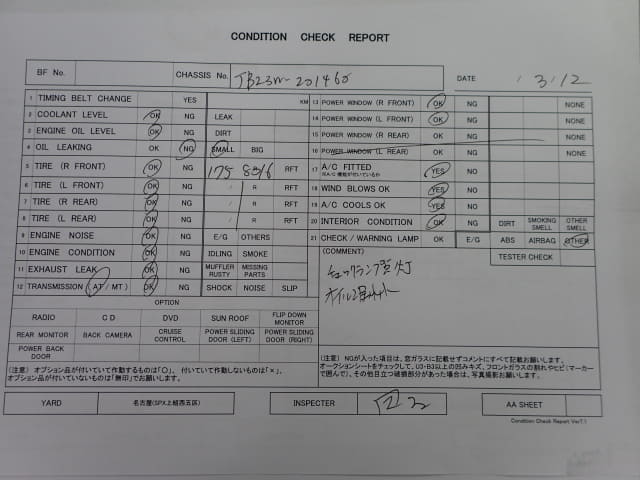 CONDITION CHECK REPORT
BF No. CHASSIS No. JB23W-201460 DATE 3/12
1 TIMING BELT CHANGE YES KM
2 COOLANT LEVEL OK NG LEAK
3 ENGINE OIL LEVEL OK NG DIRT
4 OIL LEAKING OK NG SMALL BIG
5 TIRE (R FRONT) OK NG 175 80 16 RFT
6 TIRE (L FRONT) OK NG / R RFT
7 TIRE (R REAR) OK NG / R RFT
8 TIRE (L REAR) OK NG / R RFT
9 ENGINE NOISE OK NG E/G OTHERS
10 ENGINE CONDITION OK NG IDLING SMOKE
11 EXHAUST LEAK OK NG MUFFLER RUSTY MISSING PARTS
12 TRANSMISSION (AT/MT) OK NG SHOCK NOISE SLIP
OPTION
RADIO CD DVD SUN ROOF FLIP DOWN MONITOR
REAR MONITOR BACK CAMERA CRUISE CONTROL POWER SLIDING DOOR (LEFT) POWER SLIDING DOOR (RIGHT)
POWER BACK DOOR
(注意) オプション品が付いていて作動するものは「〇」、付いてて作動しないものは「×」、
オプション品が付いていないものは「無印」でお願いします。
13 POWER WINDOW (R FRONT) OK NG NONE
14 POWER WINDOW (L FRONT) OK NG NONE
15 POWER WINDOW (R REAR) OK NG NONE
16 POWER WINDOW (L REAR) OK NG NONE
17 A/C FITTED YES NG
18 WIND BLOWS OK YES NG
19 A/C COOLS OK YES NG
20 INTERIOR CONDITION OK NG DIRT SMOKING SMELL OTHER SMELL
21 CHECK/WARNING LAMP OK E/G ABS AIRBAG OTHER
(COMMENT) TESTER CHECK
チェックランプ点灯
オイル
(注意) NGが入った項目は、窓ガラスに記載せずコメントにすべて記載お願いします。
オークションシートをチェックして、U3・B3以上の凹みキズ、フロントガラスの割れやヒビ(マーカー
で囲んで)、その他目立つ破損部分があった場合は、写真撮影お願いします。
YARD 名古屋(SPX上組西五区) INSPECTER AA SHEET
Condition Check Report Ver7.1